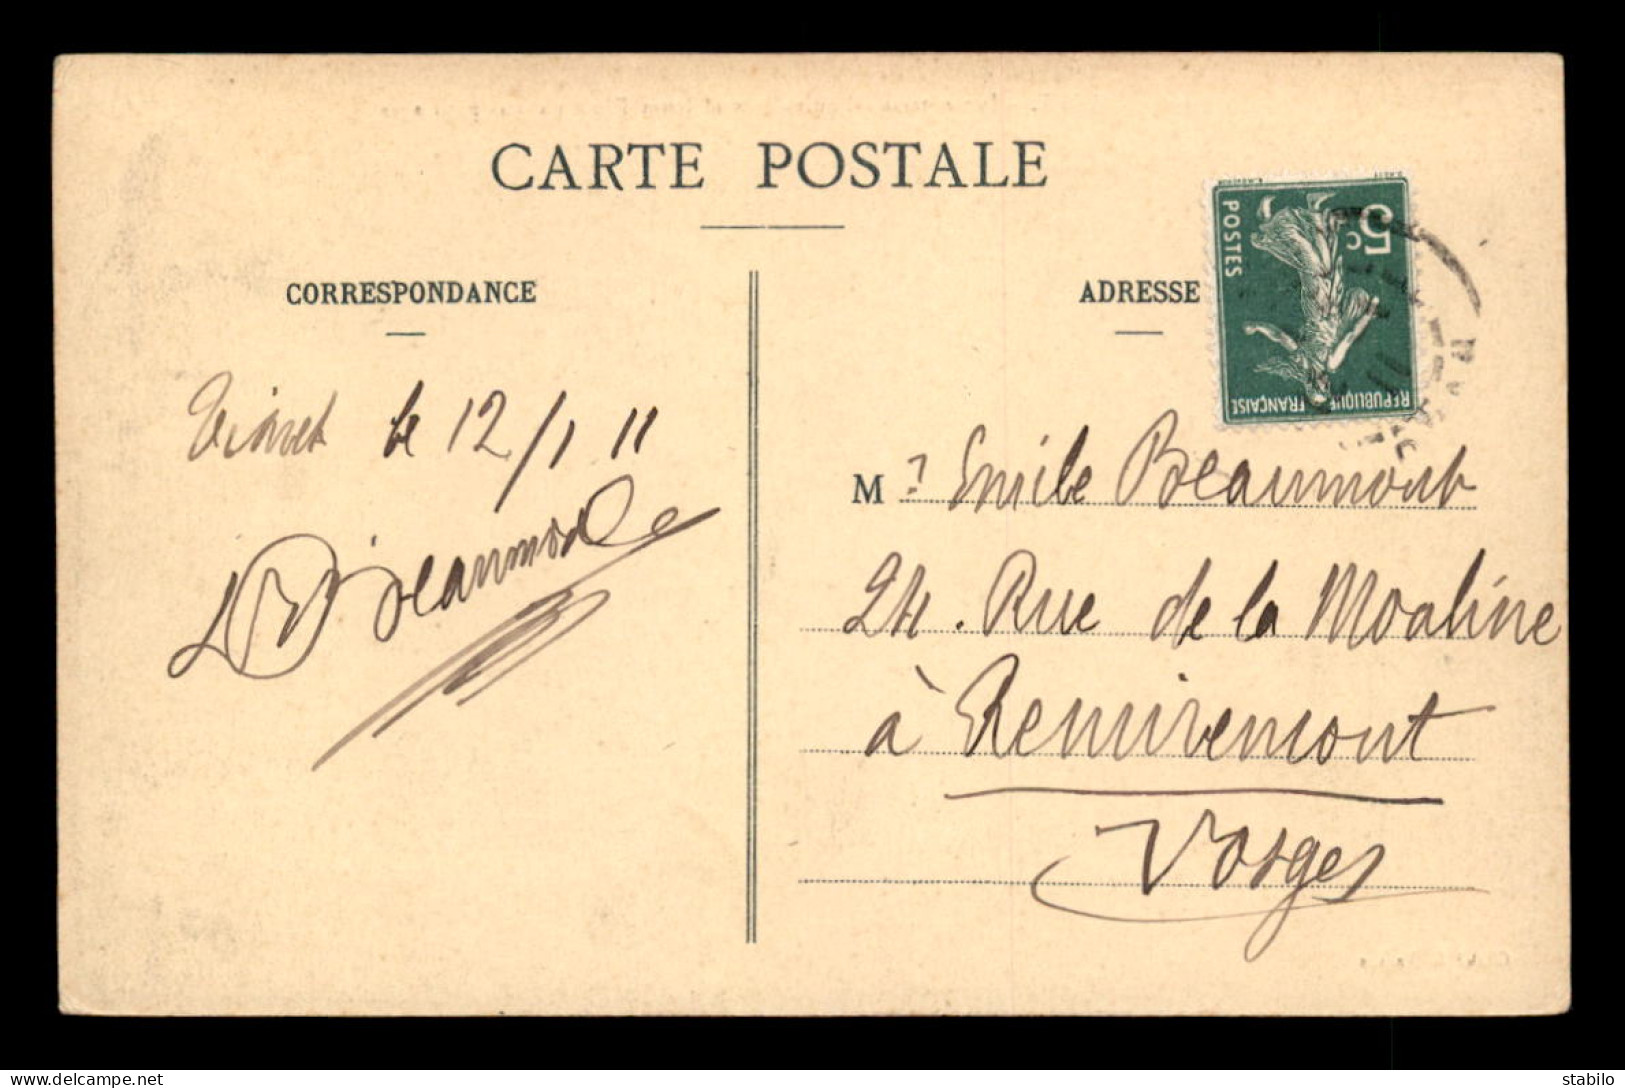 CARTE POSTALE
CORRESPONDANCE
le 12/1 11
Beaumont
ADRESSE
5c
POSTES
REPUBLIQUE FRANÇAISE
M. Emile Beaumont
24. Rue de la Moaline
à Remiremont
Vosges
delcampe.net
stabilo